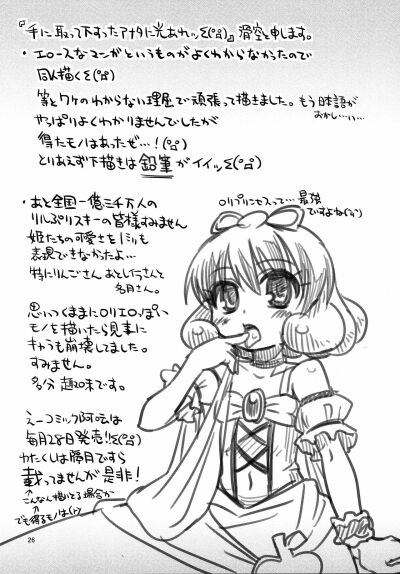 『手に取って下すったアナタに光あれッΣ(°д°)』滑空と申します。
・エロースなマンがというものがよくわからなかったので
以下描くΣ(°д°)
等とワケのわからない理屈で頑張って描きました。もう日本語が
おかしい…
やっぱりよくわかりませんでしたが
得たモノはあったぜ…!(°д°)
とりあえず下描きは鉛筆がイイッΣ(°д°)
・あと全国一億三千万人の
りルぷりスキーの皆様すみません
姫たちの可愛さを1ミリも
表現できなかったよ…
特にりんごさん あとしらうんと
名月さん。
ロリプリンセスって…最強
ですよね
思いつくままにロリエロっぽい
モノを描いたら見事に
キャラも崩壊してました。
すみません。
多分 趣味です。
えーっコミック阿吽は
毎月28日発売!!Σ(°д°)
わたくしは勝月ですら
載ってませんが是非!
↑こんなん描いとる場合か
でも得るモノは
26